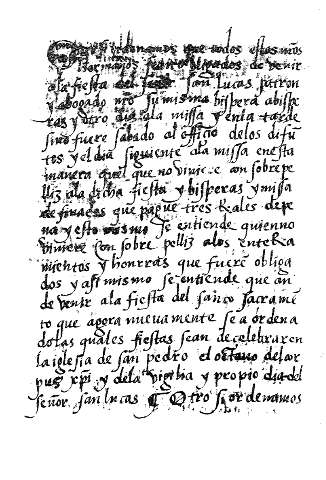 ordenamos que todos estos nros
Hermanos sean obligados de venir
ala fiesta del señor san Lucas patron
y abogado nro su misma bispera abispe
ras y otro dia ala missa y enla tarde
si no fuere sabado al officio delos difu
tos y el dia siguiente ala missa en esta
manera quel que no viniere con sobrepe
lliz ala dicha fiesta y bisperas y missa
de finados que pague tres Reales de pe
na y esto mismo se entiende quien no
viniere con sobre pelliz alos enterra
mientos y honrras que fuere obliga
dos y assimismo se entiende que an
de venir ala fiesta del santo sacrame
to que agora nuevamente se a ordena
do las quales fiestas sean de celebrar en
la iglesia de san pedro el octavo del cor
pus xpi y dela vigilia y propio dia del
señor san lucas Otro si ordenamos